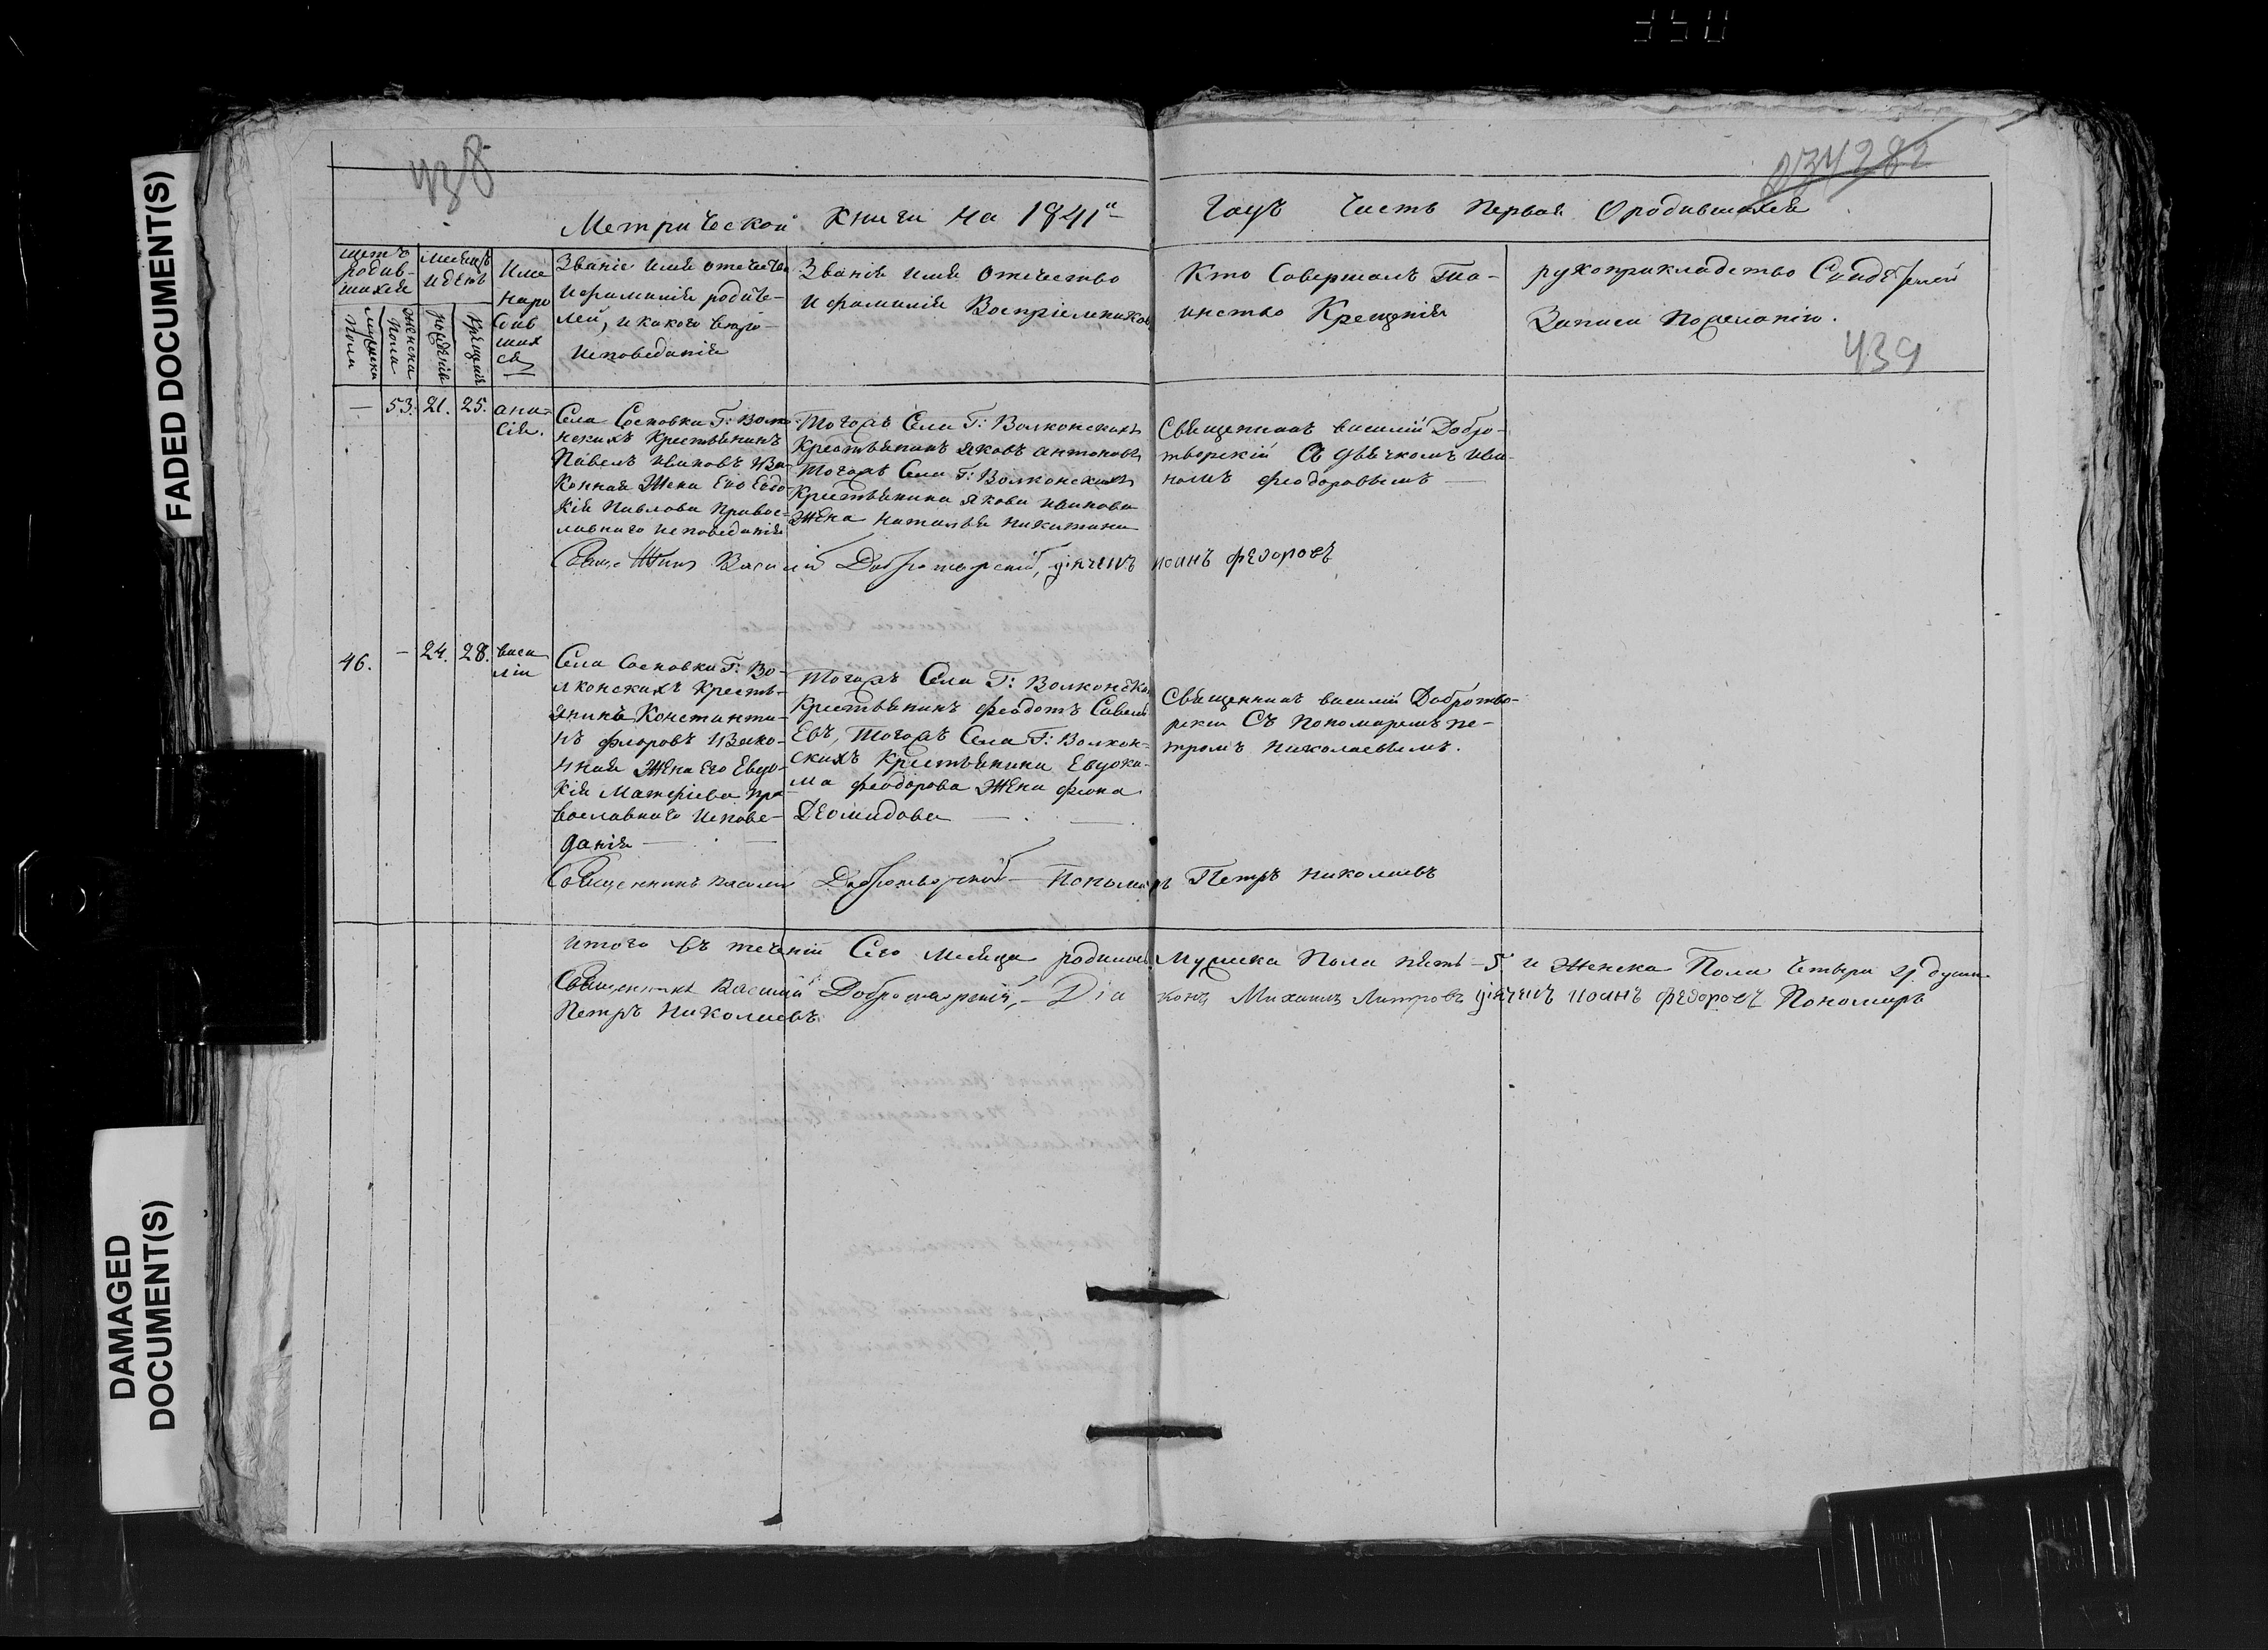 FADED DOCUMENT(S)
DAMAGED
DOCUMENT(S)
438
Метрической Книги на 1841й
Годъ Часть Первая О родившихся
439
щетъ родив-шихся
мужска Пола
Женска Пола
месяцъ и день
рождения
Крещения
Имена родившихся
Звание имя отечество
и фамилия родите-
лей, и какого веро-
исповедания
Звание имя отечество
и фамилия Восприемников
Кто Совершалъ Та-
инство Крещения
рукоприкладство Свидетелей
Записи По желанию.
— 53. 21. 25.
ани-
сия.
Села Сосновки Г: Волко-
нскихъ Крестьянинъ
Павелъ Ивановъ Зва-
Конная Жена Его Евдо-
кия Павлова Правос-
лавнаго исповедания
Тогожъ Села Г: Волконскихъ
Крестьянинъ Яковъ антоновъ
Тогожъ Села Г: Волконскихъ
Крестьянина Якова иванова
Жена Наталья Никитина
Священникъ василий Добро-
творский Съ дьячкомъ ива-
номъ феодоровымъ —
Василий Добротворский, дьячекъ иоанъ федоровъ
46. — 24. 28.
васи
лий
Села Сосновки Г: Во-
лконскихъ Кресть-
янинъ Константи-
нъ флоровъ Зако-
нная Жена Его Евдо-
кия Матфиева пра
вославнаго Испове-
дания —
Тогожъ Села Г: Волконско
Крестьянинъ феодотъ Савель
Евъ, Тогожъ Села Г: Волкон-
скихъ Крестьянина Евдоки-
ма феодорова Жена
Деомидова —
Священникъ василий Добротво-
рский Съ Пономаремъ пе-
тромъ николаевымъ.
Священникъ Василий Добротворский — Пономарь Петръ Николаевъ
итого въ течении Сего месяца родилось Мужска Пола пять — 5 и Женска Пола Четыре 4 души
Священникъ Василий Добротворский, — Диаконъ Михаилъ дьячекъ иоанъ федоровъ Пономарь
Петръ Николаевъ